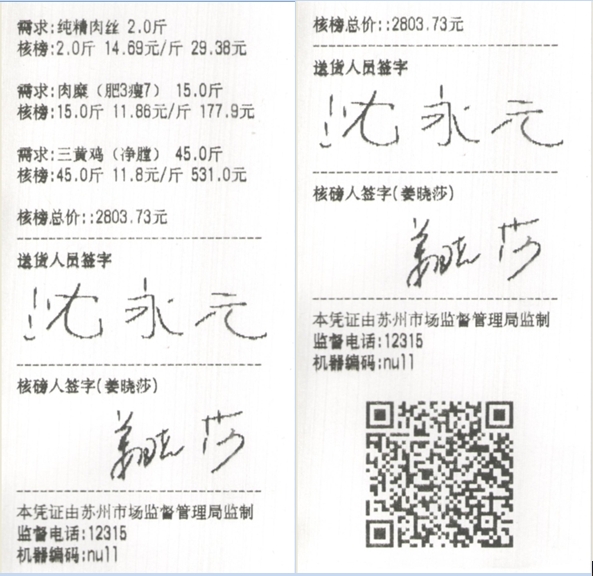 需求:纯精肉丝 2.0斤
核榜:2.0斤 14.69元/斤 29.38元
需求:肉糜（肥3瘦7） 15.0斤
核榜:15.0斤 11.86元/斤 177.9元
需求:三黄鸡（净膛） 45.0斤
核榜:45.0斤 11.8元/斤 531.0元
核榜总价::2803.73元
送货人员签字
沈永元
核磅人签字(姜晓莎)
姜晓莎
本凭证由苏州市场监督管理局监制
监督电话:12315
机器编码:null
核榜总价::2803.73元
送货人员签字
沈永元
核磅人签字(姜晓莎)
姜晓莎
本凭证由苏州市场监督管理局监制
监督电话:12315
机器编码:null